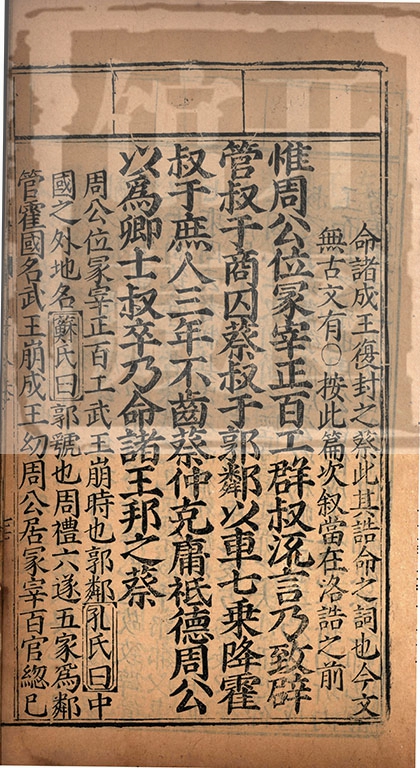 命諸成王復封之蔡此其誥命之詞也今文
無古文有○按此篇次叙當在洛誥之前
惟周公位冢宰正百工群叔流言乃致辟
管叔于商囚蔡叔于郭鄰以車七乗降霍
叔于庶人三年不齒蔡仲克庸祗德周公
以爲卿士叔卒乃命諸王邦之蔡
周公位冢宰正百工武王崩時也郭鄰孔氏曰中
國之外地名蘇氏曰郭虢也周禮六遂五家爲鄰
管霍國名武王崩成王幼周公居冢宰百官緫已